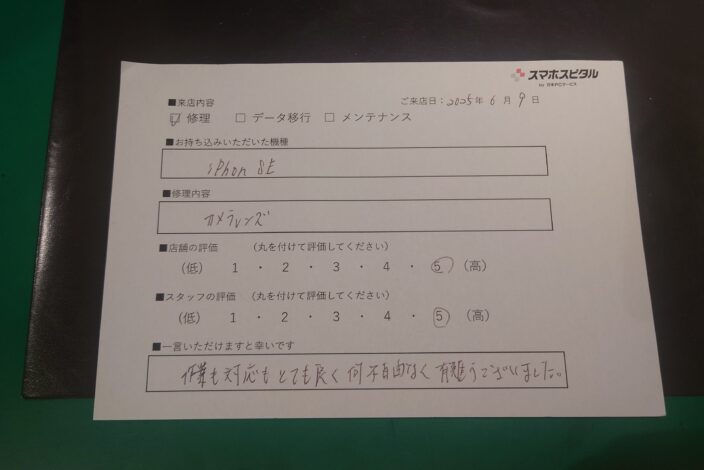 スマホスピタル
by 日本PCサービス
ご来店日：2025年 6月 9日
■来店内容
☑ 修理 □ データ移行 □ メンテナンス
■お持ち込みいただいた機種
iPhon SE
■修理内容
カメラレンズ
■店舗の評価 （丸を付けて評価してください）
（低） 1 ・ 2 ・ 3 ・ 4 ・ 5 （高）
■スタッフの評価 （丸を付けて評価してください）
（低） 1 ・ 2 ・ 3 ・ 4 ・ 5 （高）
■一言いただけますと幸いです
作業も対応もとても良く何不自由なく有難うございました。